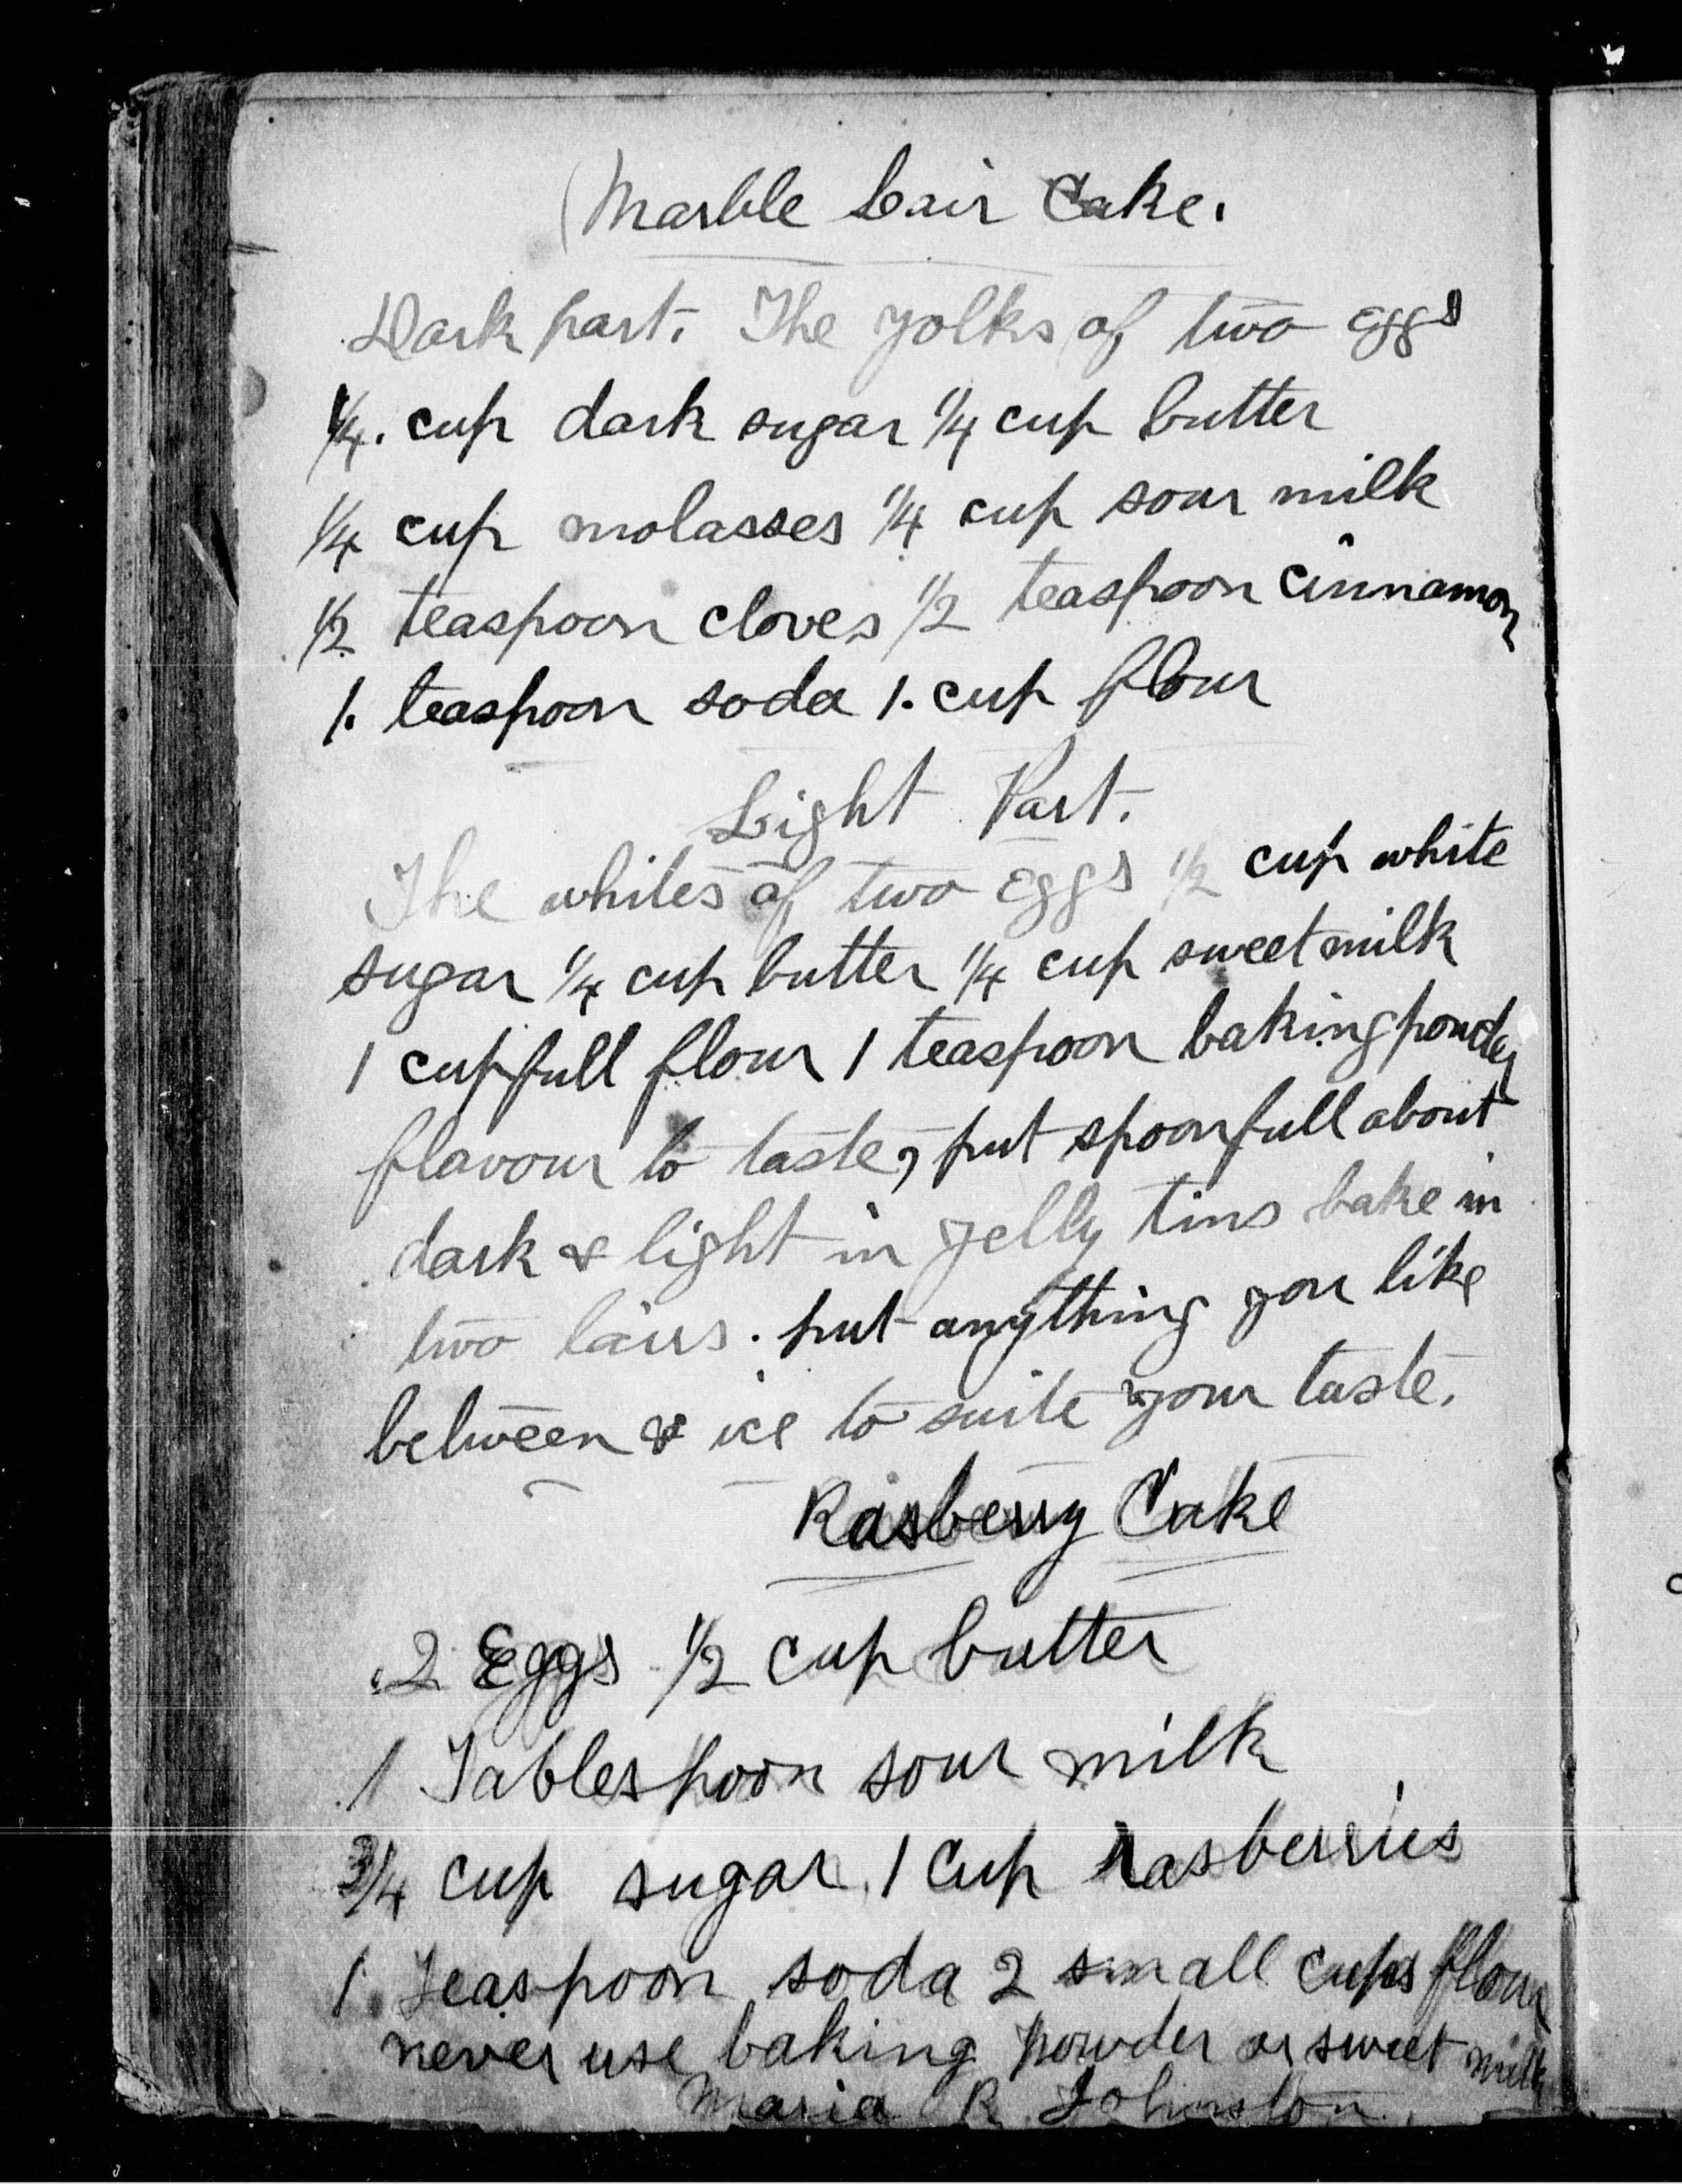 Marble Lair Cake.
Dark part. The yolks of two eggs
1/4. cup dark sugar 1/4 cup butter
1/4 cup molasses 1/4 cup sour milk
1/2 teaspoon cloves 1/2 teaspoon cinnamon
1. teaspoon soda 1. cup flour
Light Part.
The whites of two eggs 1/2 cup white
sugar 1/4 cup butter 1/4 cup sweet milk
1 cupfull flour 1 teaspoon baking powder
flavour to taste, put spoonfull about
dark & light in jelly tins bake in
two lairs. put anything you like
between & ice to suite your taste.
Rasberry Cake
2 Eggs 1/2 cup butter
1 Tablespoon sour milk
3/4 cup sugar, 1 cup rasberries
1 Teaspoon soda 2 small cups flour
never use baking powder or sweet milk
Maria R. Johnston.